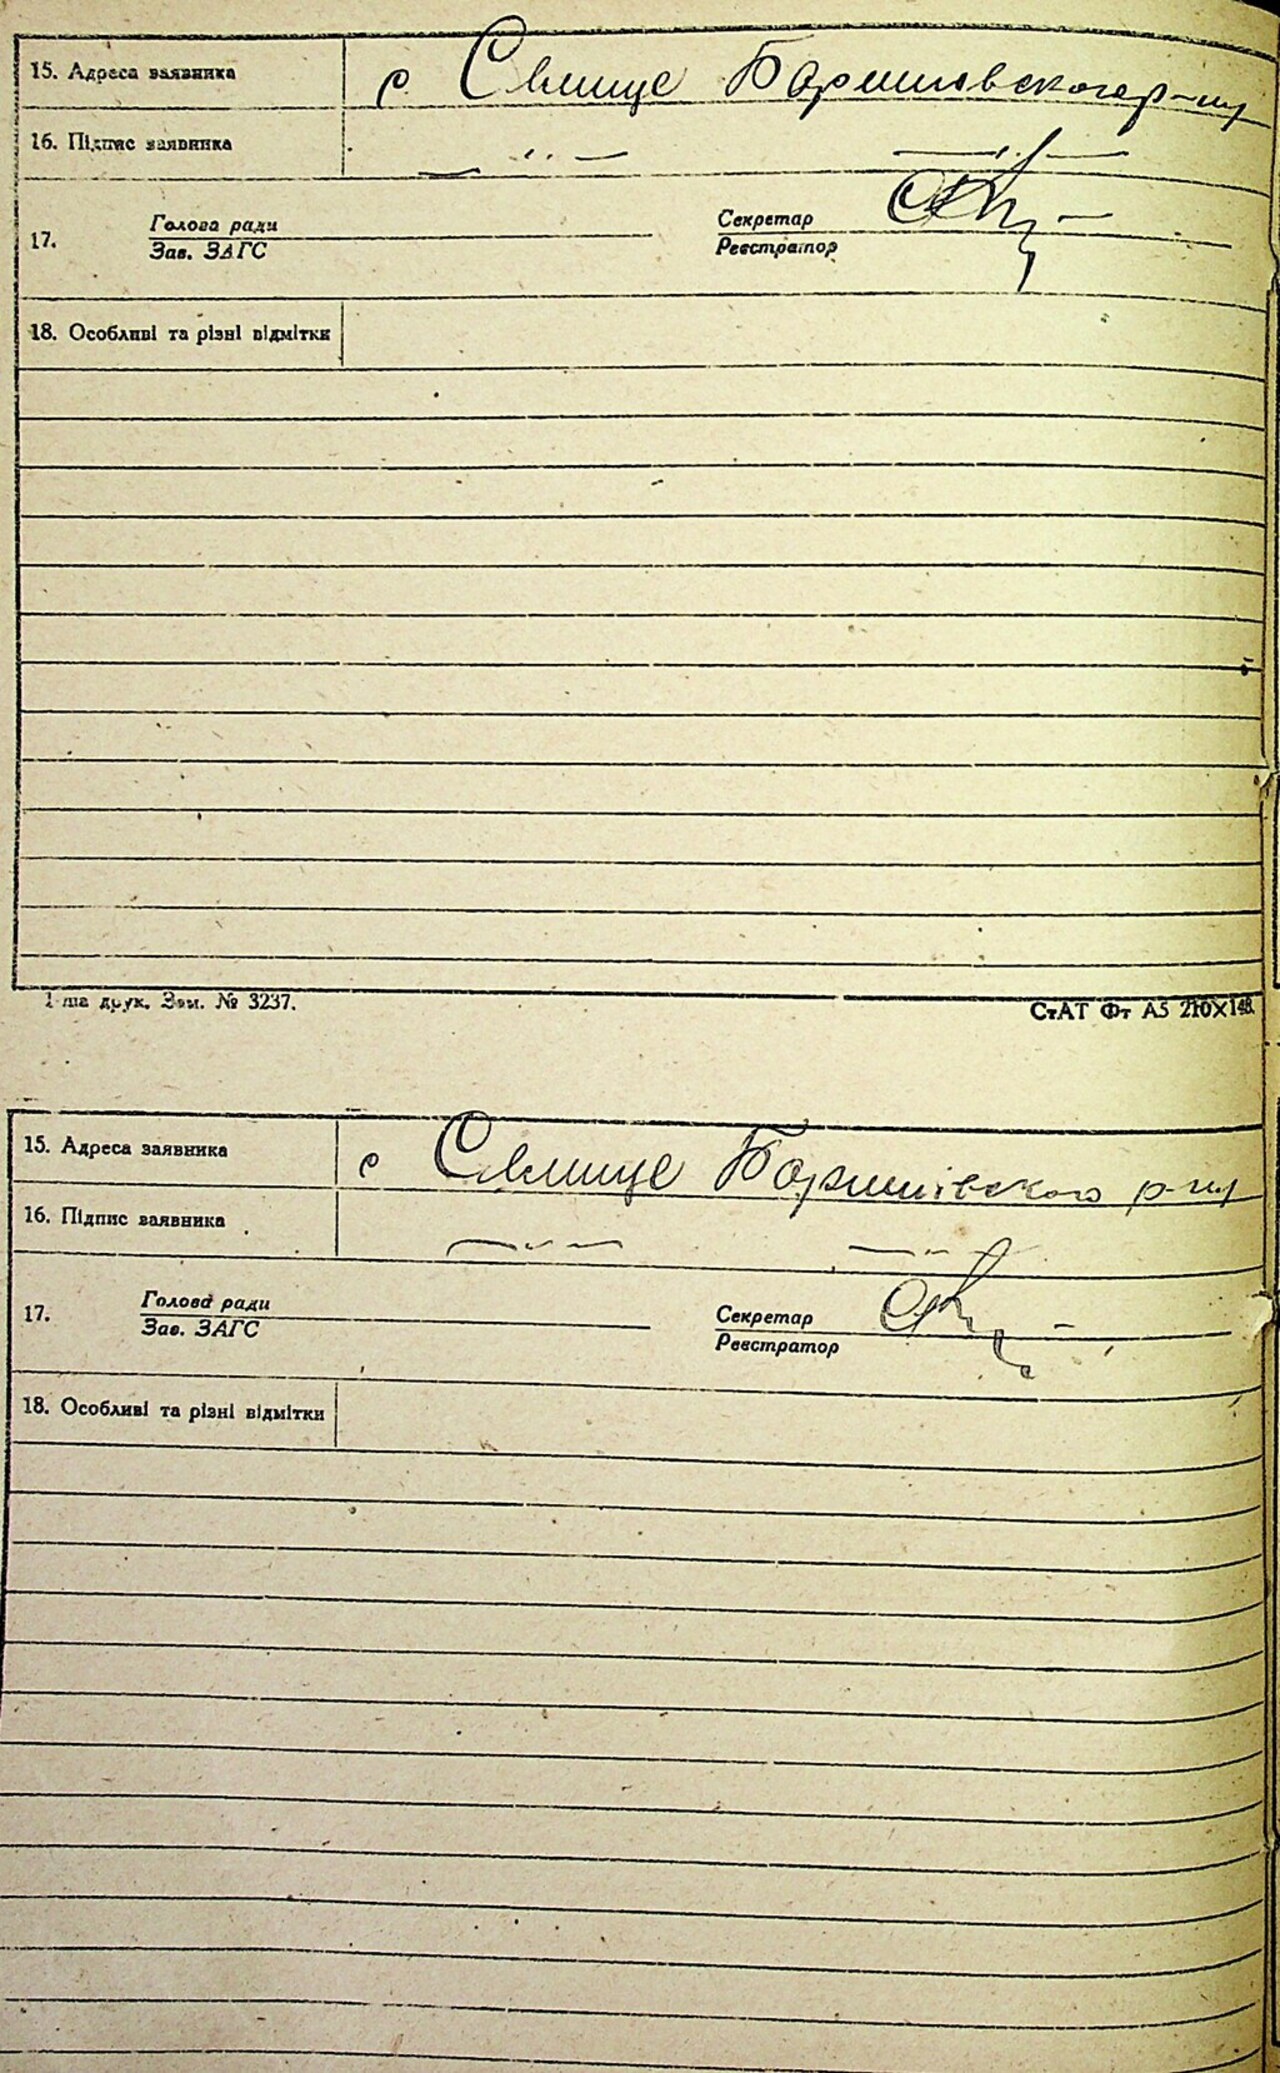 15. Адреса заявника с Селище Баришовскогор-ну
16. Підпис заявника — " — — " —
17. Голова ради Секретар
Зав. ЗАГС Реєстратор
18. Особливі та різні відмітки
1-ша друк. Зам. № 3237. СтАТ Фт А5 210×148.
15. Адреса заявника с Селище Баришівского р-ну
16. Підпис заявника — " — — " —
17. Голова ради Секретар
Зав. ЗАГС Реєстратор
18. Особливі та різні відмітки